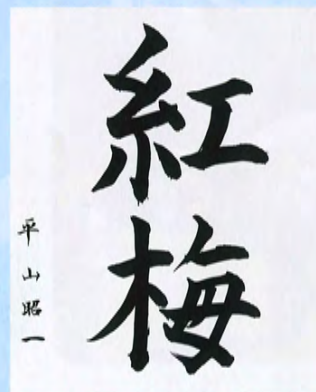 紅梅
平山昭一